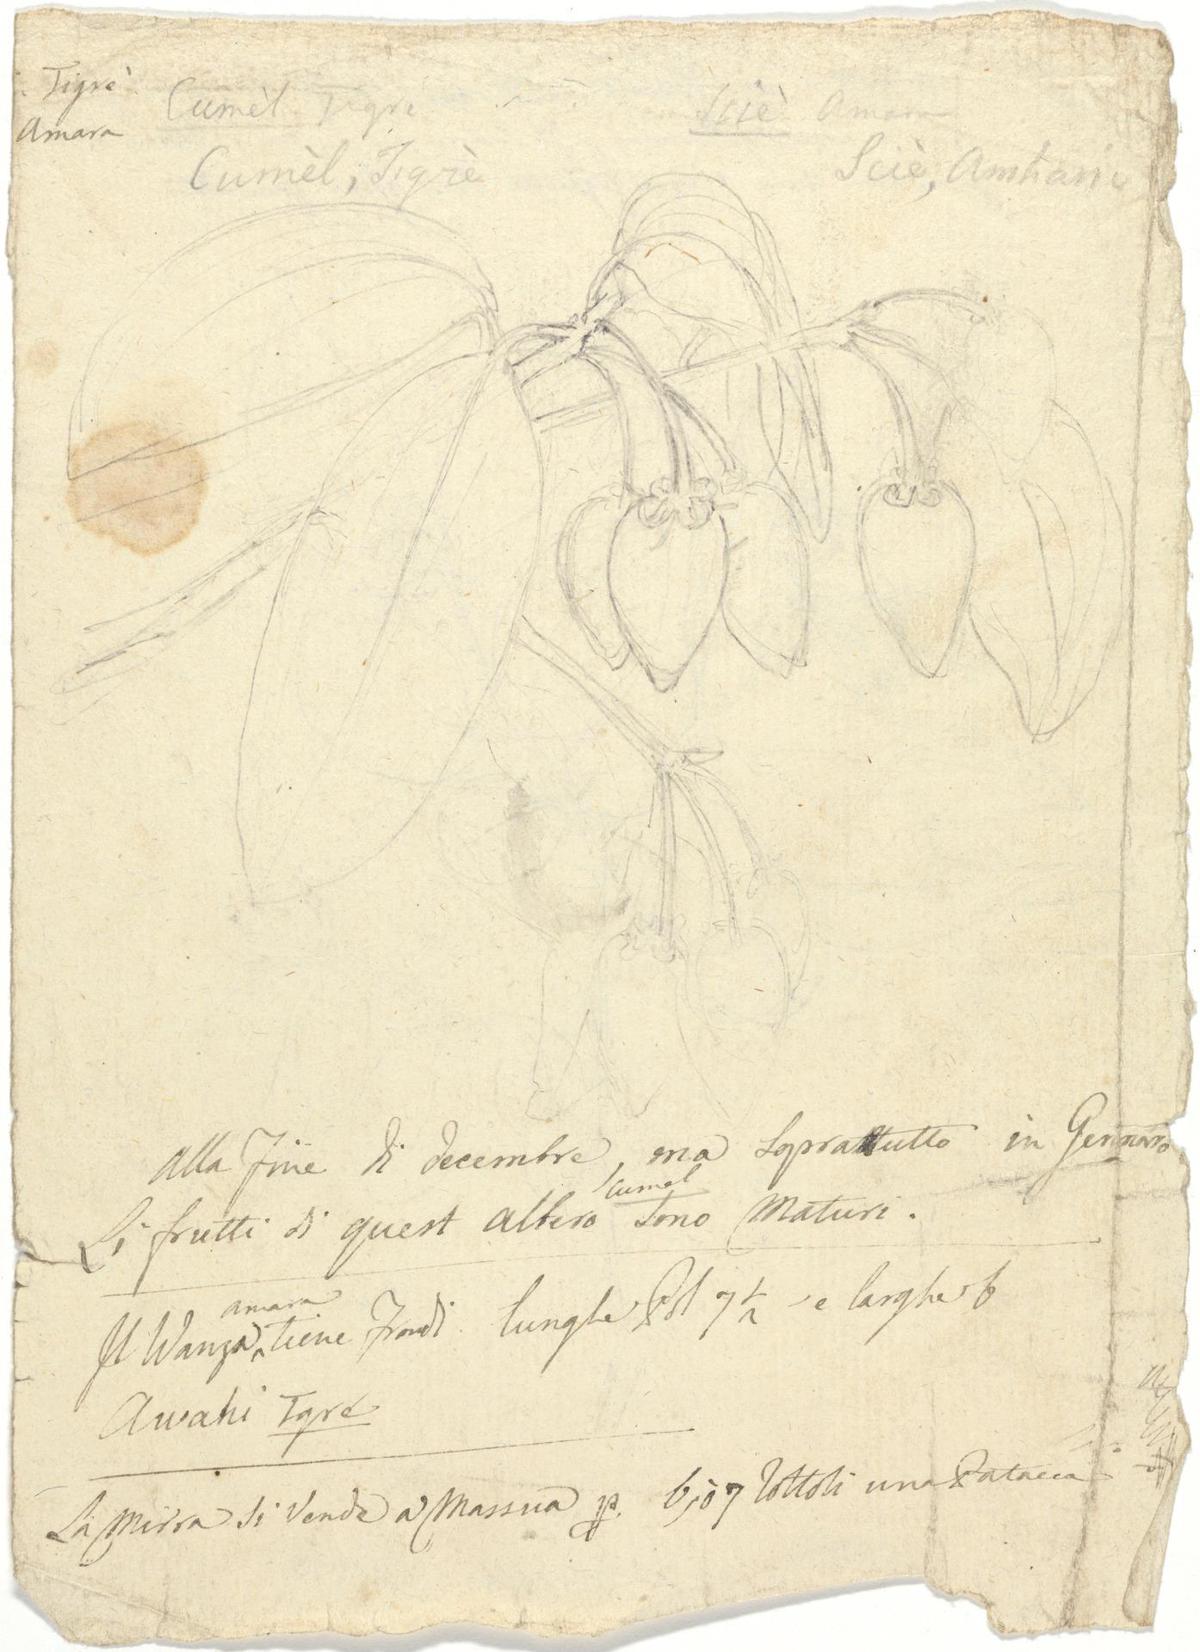 Tigrè
Amara
Cumèl Tigrè
Sciè Amara
Cumèl, Tigrè
Sciè, Amhari
alla fine di decembre, ma soprattutto in Gennaro
Cumel
Li frutti di quest albero sono Maturi.
amara
Il Wanza tiene frondi lunghe Pol 7 1/2 e larghe 6
Awahi Tgré
La Mirra si vende a Massua p. 6, ò 7 Rottoli una Patacca